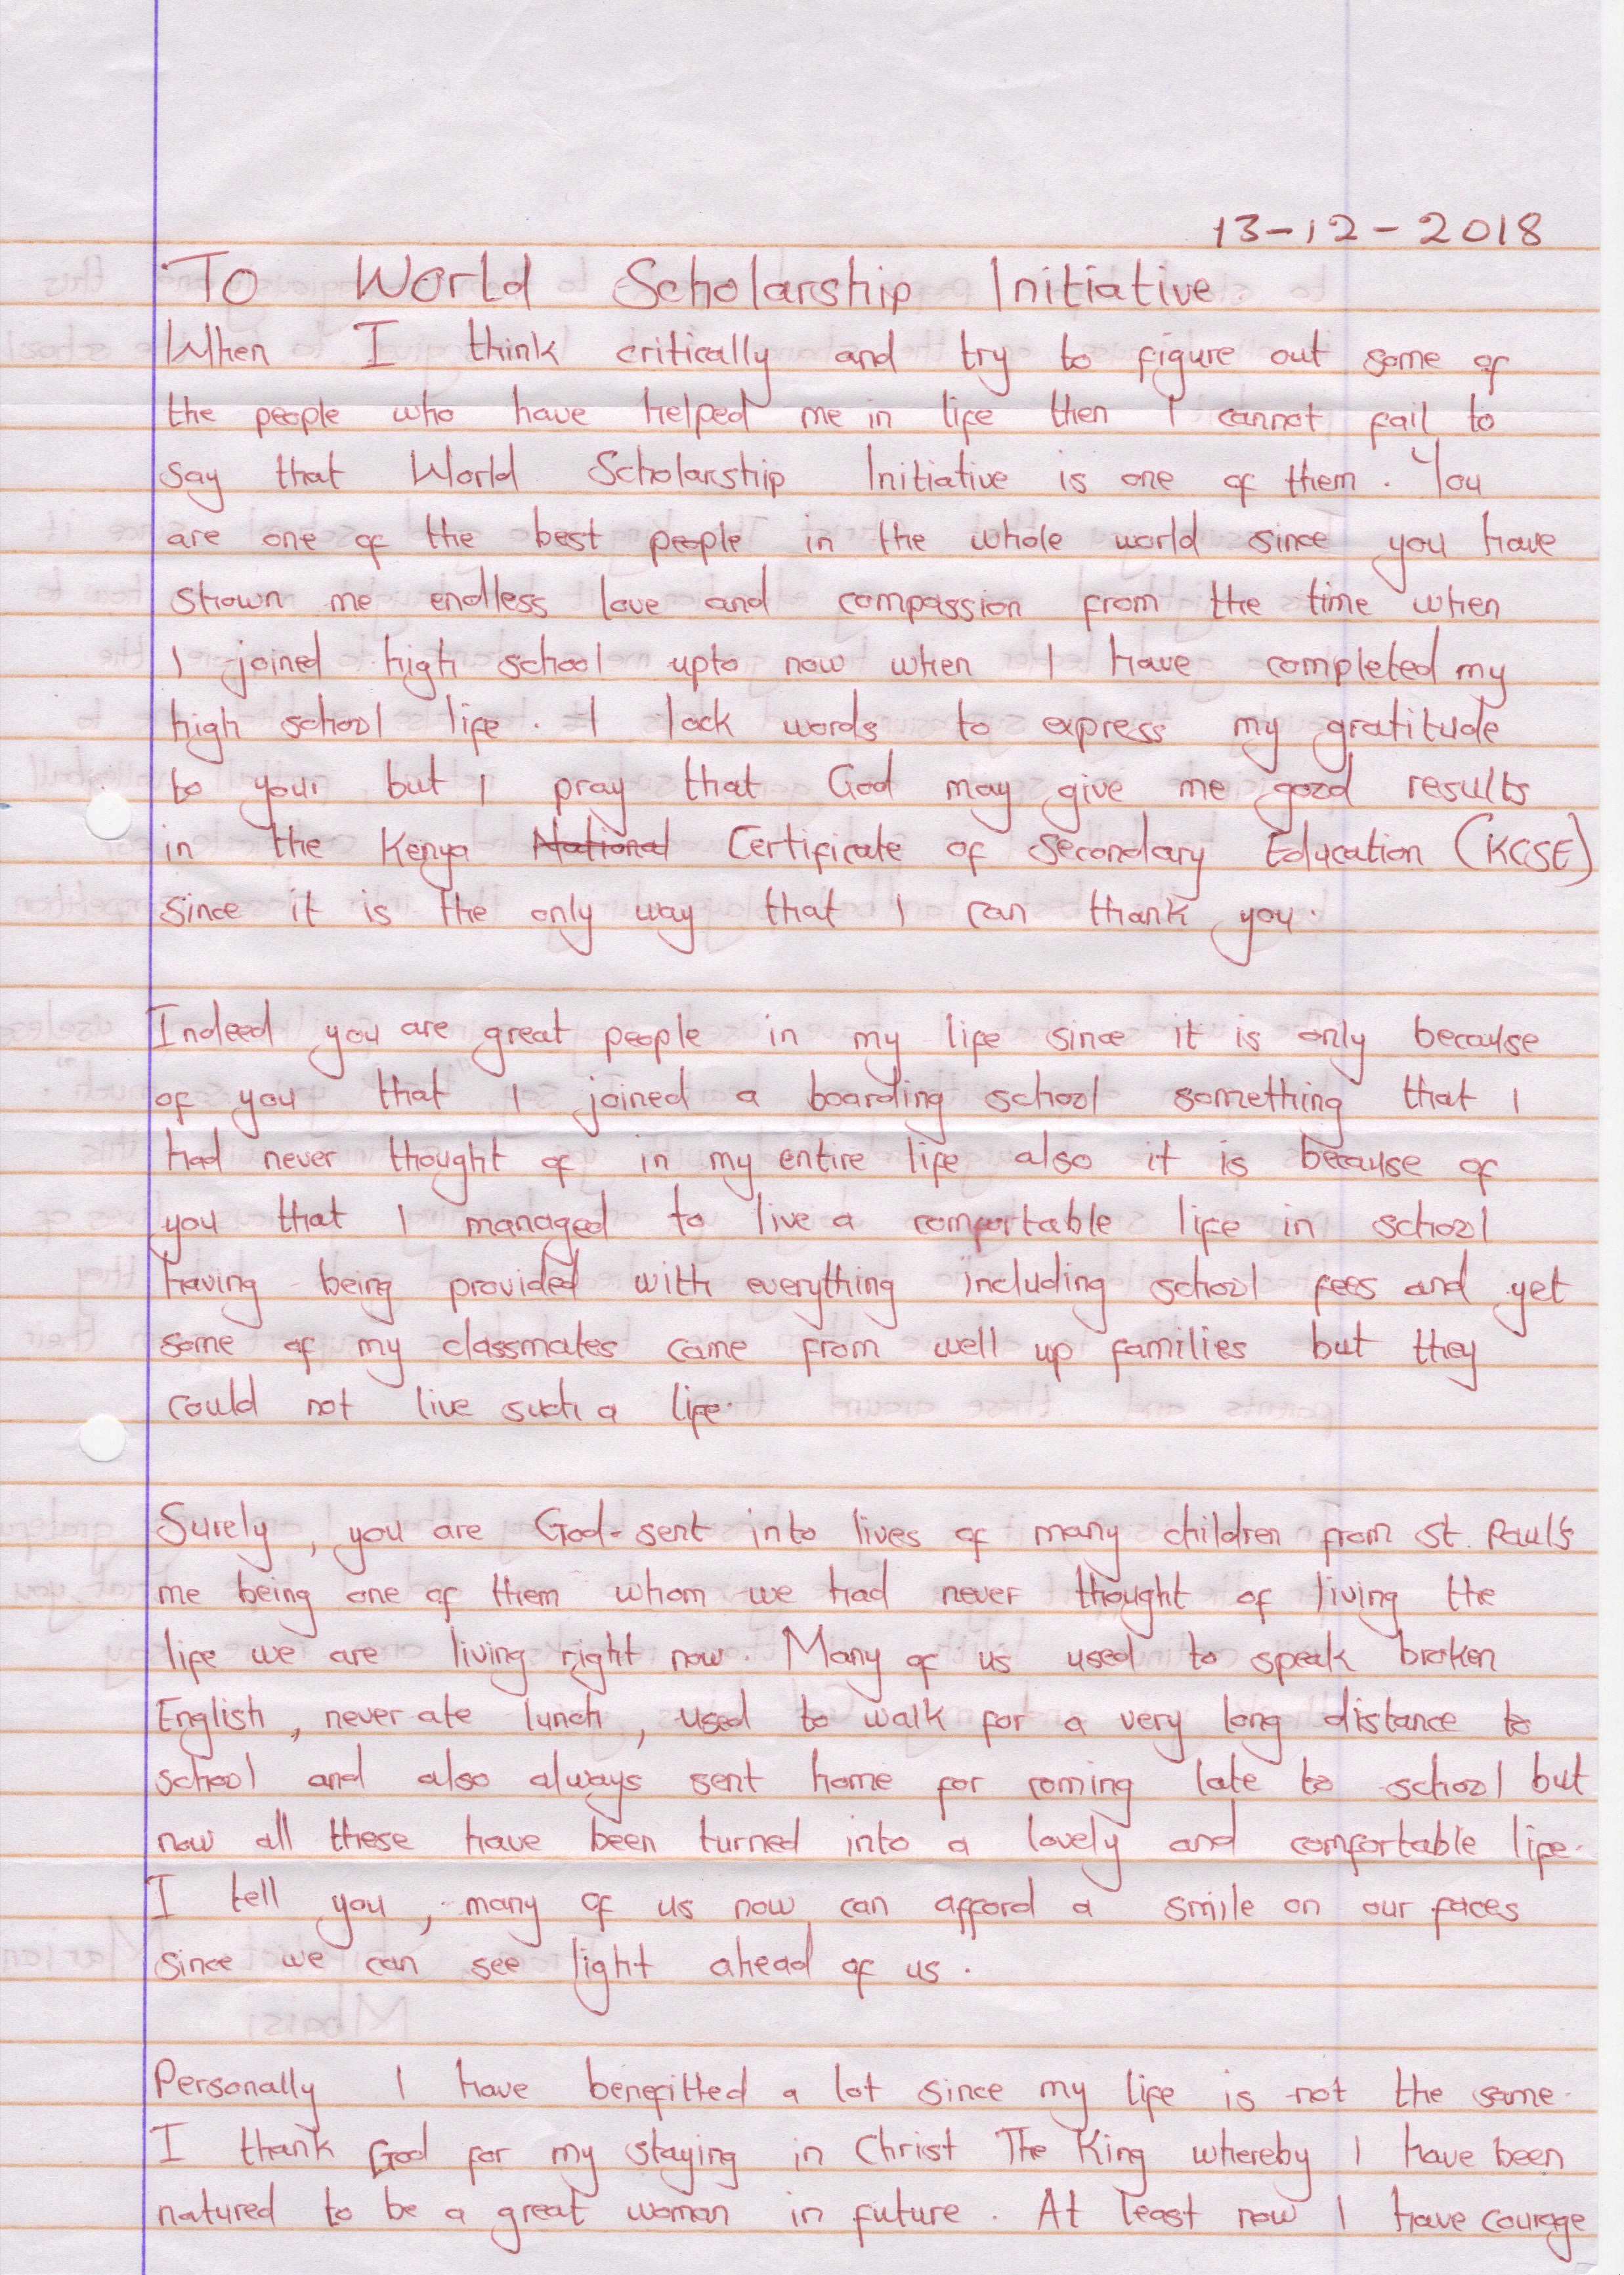 13-12-2018
To World Scholarship Initiative
When I think critically and try to figure out some of
the people who have helped me in life then I cannot fail to
say that World Scholarship Initiative is one of them. You
are one of the best people in the whole world since you have
shown me endless love and compassion from the time when
I joined high school upto now when I have completed my
high school life. I lack words to express my gratitude
to your but I pray that God may give me good results
in the Kenya National Certificate of Secondary Education (KCSE)
since it is the only way that I can thank you.
Indeed you are great people in my life since it is only because
of you that I joined a boarding school something that I
had never thought of in my entire life also it is because of
you that I managed to live a comfortable life in school
having being provided with everything including school fees and yet
some of my classmates came from well up families but they
could not live such a life.
Surely, you are God-sent into lives of many children from St. Paul's
me being one of them whom we had never thought of living the
life we are living right now. Many of us used to speak broken
English, never ate lunch, used to walk for a very long distance to
school and also always sent home for coming late to school but
now all these have been turned into a lovely and comfortable life.
I tell you, many of us now can afford a smile on our faces
since we can see light ahead of us.
Personally I have benefitted a lot since my life is not the same.
I thank God for my staying in Christ The King whereby I have been
natured to be a great woman in future. At least now I have courage